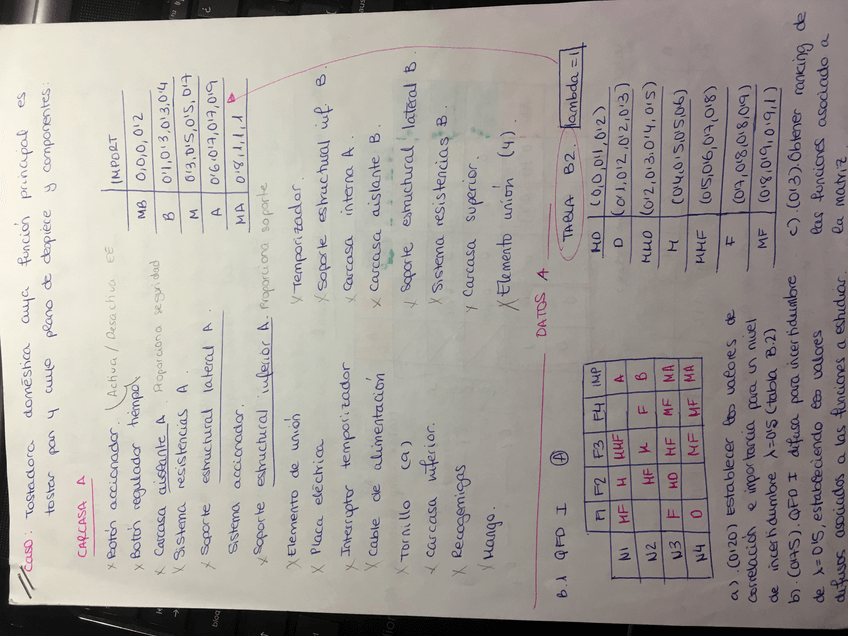 Caso: Tostadora doméstica cuya función principal es
tostar pan y cuyo plano de despiece y componentes:
CARCASA A
x Botón accionador. (Activa / Desactiva EE
x Botón regulador tiempo
x Carcasa aislante A Proporciona seguridad
x Sistema resistencias A.
x Soporte estructural lateral A.
Sistema accionador.
x Soporte estructural inferior A. Proporciona soporte
x Elemento de unión
x Placa eléctrica
x Interruptor temporizador
x Cable de alimentación
x Tornillo (a)
x Carcasa inferior.
x Recogemigas
x Mango.
x Temporizador.
x Soporte estructural inf. B.
x Carcasa interna A.
x Carcasa aislante B.
x Soporte estructural lateral B.
x Sistema resistencias B.
x Carcasa superior.
x Elemento unión (4).
IMPORT
MB 0,0,0,0'2
B 0'1,0'3,0'3,0'4
M 0'3,0'5,0'5,0'7
A 0'6,0'7,0'7,0'9
MA 0'8,1,1,1
DATOS A
B.1 QFD I A
F1 F2 F3 F4 IMP
N1 MF M MMF A
N2 MF M F B
N3 F MD MF MF MA
N4 D MF MF MA
TABLA B2. lambda=1
MD (0,0,0'1,0'2)
D (0'1,0'2,0'2,0'3)
MMD (0'2,0'3,0'4,0'5)
M (0'4,0'5,0'5,0'6)
MMF (0'5,0'6,0'7,0'8)
F (0'7,0'8,0'8,0'9)
MF (0'8,0'9,0'9,1)
a). (0'20) Establecer los valores de
correlación e importancia para un nivel
de incertidumbre λ=0'5 (tabla B.2)
b). (0'75). QFD I difusa para incertidumbre
de λ=0'5, estableciendo los valores
difusos asociados a las funciones a estudiar.
c). (0'3). Obtener ranking de
las funciones asociado a
la matriz